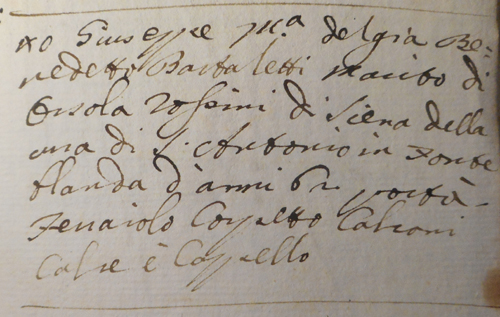 xo Giuseppe m.a del gia Be=
nedetto Bartaletti marito di
Orsola Rossini di Siena della
cura di S. Antonio in Fonte
blanda d'anni 62 portò
Ferraiolo Corpetto Calzoni
Calze è Cappello